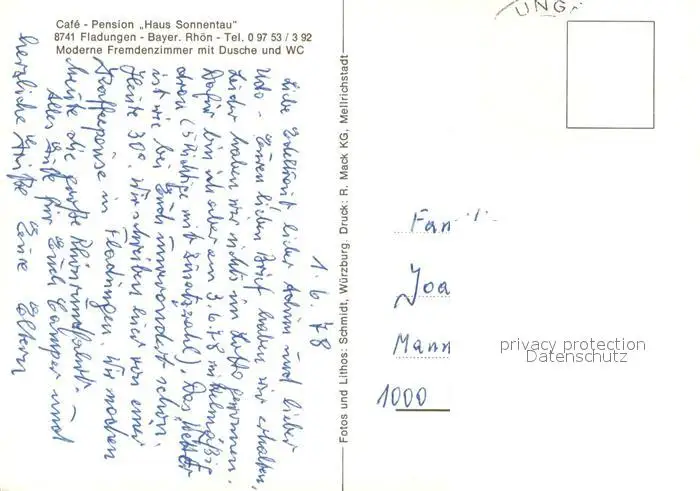 Café - Pension „Haus Sonnentau"
8741 Fladungen - Bayer. Rhön - Tel. 0 97 53 / 3 92
Moderne Fremdenzimmer mit Dusche und WC
1. 6. 78
Liebe Edeltraut lieber Achim und lieber
Udo - Euren lieben Brief haben wir erhalten,
Leider haben wir nichts im Lotto gewonnen.
Dafür bin ich aber am 3.6.78 mittelmäßig
dran (5 Richtige mit Zusatzzahl). Das Wetter
ist wie bei Euch unverändert schön.
Heute 30°. Wir schreiben hier von einer
Kaffeepause in Fladungen. Wir machen
heute die große Rhönrundfahrt.
Alles Gute für Euch Camper und
herzliche Grüße Eure Eltern
Fotos und Lithos: Schmidt, Würzburg. Druck: R. Mack KG, Mellrichstadt
UNG
Fam
Joa
Mann
1000
privacy protection
Datenschutz